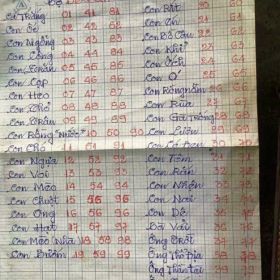 Cá Trắng 01 41 81
Con Ốc 02 42 82
Con Ngỗng 03 43 83
Con Công 04 44 84
Con 05 45 85
Con Cọp 06 46 86
Con Heo 07 47 87
Con Thỏ 08 48 88
Con Trâu 09 49 89
Con Rồng 10 50 90
Con Chó 11 51 91
Con Ngựa 12 52 92
Con Voi 13 53 93
Con Mèo 14 54 94
Con Chuột 15 55 95
Con Ong 16 56 96
Con Hạt 17 57 97
Con Mèo Nhà 18 58 98
Con Bướm 19 59 99
Con Rết
Con
Con Bồ Câu 22
Con Khỉ 23
Con Ếch 24 64
Con Ó 25 65
Con Rồng nằm 26 66
Con Rùa 27 67
Con Gà Trống 28 68
Con Lươn 29 69
Con Cá Đen 30
Con Tôm 31 71
Con Rắn 32 72
Con Nhện 33 73
Con Nai 34 74
Con Dê 35 75
Bà Vải 36 76
Ông Trời 37 77
Ông Thổ Địa 38 78
Ông Thần Tài 39